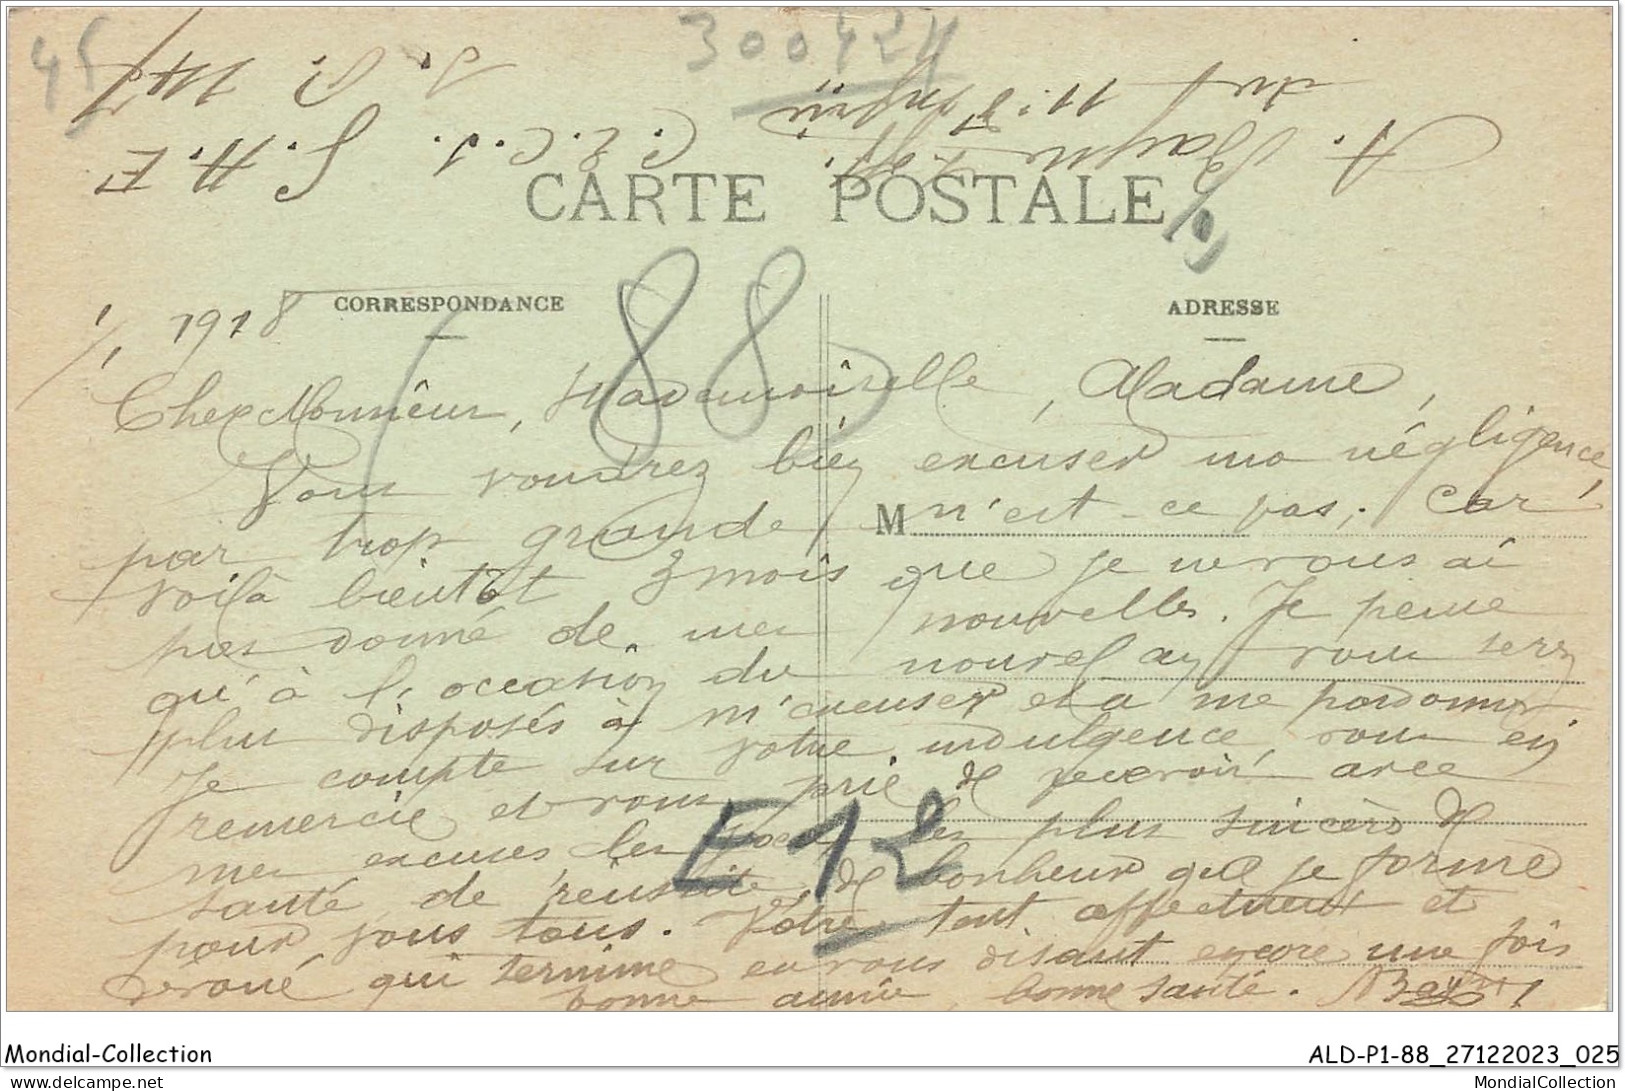 45
300424
A. Bayle
dét. 11e Génie
C.E.C.1. S.H.E
S. P. 147
CARTE POSTALE
88
1/1 1918 CORRESPONDANCE
ADRESSE
Cher Monsieur, Mademoiselle, Madame,
Vous voudrez bien excuser ma négligence
par trop grande, M n'est-ce pas, Car
voilà bientôt 3 mois que je ne vous ai
pas donné de mes nouvelles. Je pense
qu'à l'occasion du nouvel an vous serez
plus disposés à m'excuser et à me pardonner
Je compte sur votre indulgence, vous en
remercie et vous prie de recevoir avec
mes excuses les voeux les plus sincères de
santé, de réussite, de bonheur que je forme
pour vous tous. Votre tout affectueux et
dévoué qui termine en vous disant encore une fois
bonne année, bonne santé.
E12
Mondial-Collection
ALD-P1-88_27122023_025
www.delcampe.net
MondialCollection